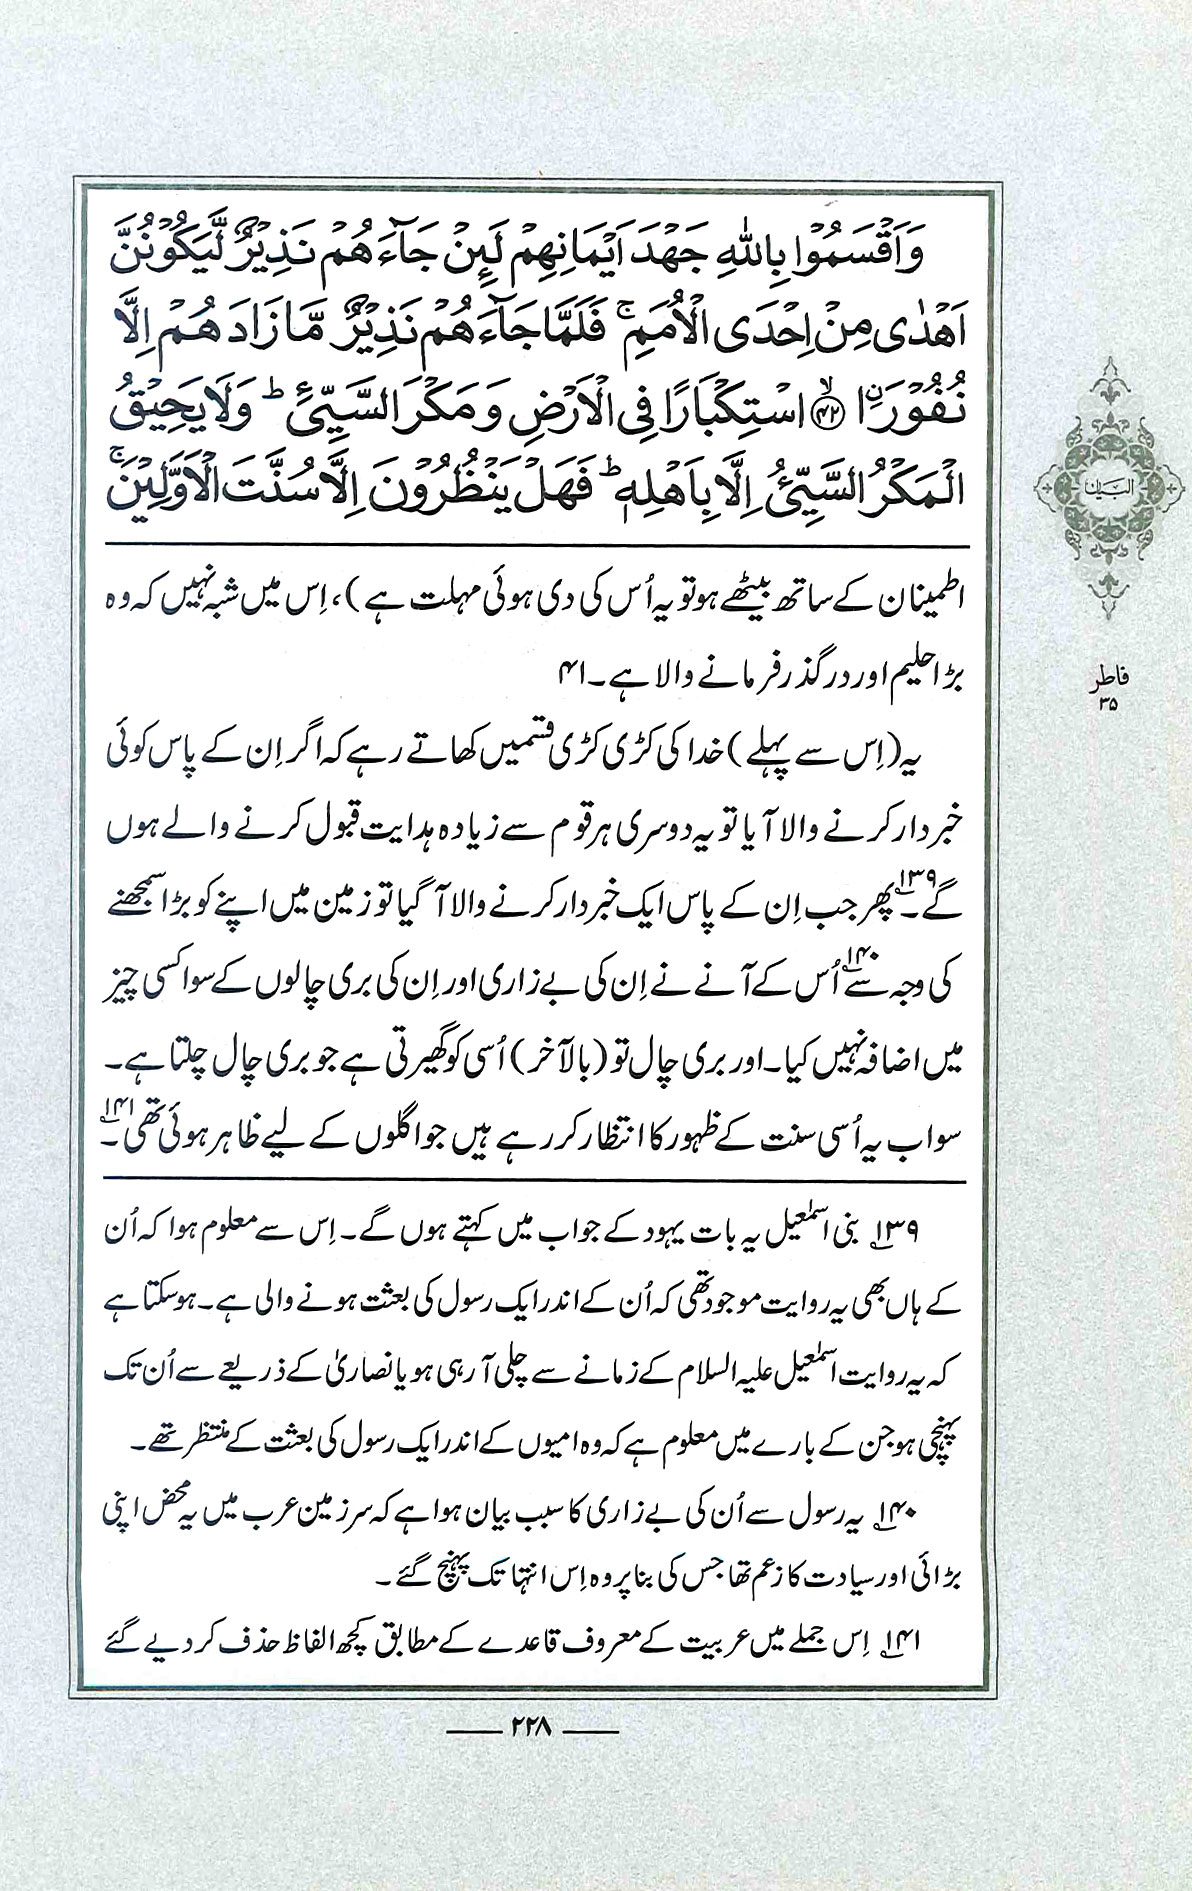 وَاَقْسَمُوْا بِاللّٰهِ جَهْدَ اَيْمَانِهِمْ لَئِنْ جَآءَهُمْ نَذِيْرٌ لَّيَكُوْنُنَّ
اَهْدٰى مِنْ اِحْدَى الْاُمَمِۚ فَلَمَّا جَآءَهُمْ نَذِيْرٌ مَّا زَادَهُمْ اِلَّا
نُفُوْرَاۨ ﴿۴۲﴾ۙ اسْتِكْبَارًا فِى الْاَرْضِ وَمَكْرَ السَّيِّئِؕ وَلَا يَحِيْقُ
الْمَكْرُ السَّيِّئُ اِلَّا بِاَهْلِهٖؕ فَهَلْ يَنْظُرُوْنَ اِلَّا سُنَّتَ الْاَوَّلِيْنَۚ
اطمینان کے ساتھ بیٹھے ہو تو یہ اُس کی دی ہوئی مہلت ہے)، اِس میں شبہ نہیں کہ وہ
بڑا حلیم اور درگذر فرمانے والا ہے۔ ۴۱
یہ (اِس سے پہلے) خدا کی کڑی کڑی قسمیں کھاتے رہے کہ اگر اِن کے پاس کوئی
خبردار کرنے والا آیا تو یہ دوسری ہر قوم سے زیادہ ہدایت قبول کرنے والے ہوں
گے۔۱۳۹ پھر جب اِن کے پاس ایک خبردار کرنے والا آ گیا تو زمین میں اپنے کو بڑا سمجھنے
کی وجہ سے۱۴۰ اُس کے آنے نے اِن کی بے زاری اور اِن کی بری چالوں کے سوا کسی چیز
میں اضافہ نہیں کیا۔ اور بری چال تو (بالآخر) اُسی کو گھیرتی ہے جو بری چال چلتا ہے۔
سو اب یہ اُسی سنت کے ظہور کا انتظار کر رہے ہیں جو اگلوں کے لیے ظاہر ہوئی تھی۔۱۴۱
۱۳۹ بنی اسمٰعیل یہ بات یہود کے جواب میں کہتے ہوں گے۔ اِس سے معلوم ہوا کہ اُن
کے ہاں بھی یہ روایت موجود تھی کہ اُن کے اندر ایک رسول کی بعثت ہونے والی ہے۔ ہو سکتا ہے
کہ یہ روایت اسمٰعیل علیہ السلام کے زمانے سے چلی آ رہی ہو یا نصاریٰ کے ذریعے سے اُن تک
پہنچی ہو جن کے بارے میں معلوم ہے کہ وہ امیوں کے اندر ایک رسول کی بعثت کے منتظر تھے۔
۱۴۰ یہ رسول سے اُن کی بے زاری کا سبب بیان ہوا ہے کہ سرزمین عرب میں یہ محض اپنی
بڑائی اور سیادت کا زعم تھا جس کی بنا پر وہ اِس انتہا تک پہنچ گئے۔
۱۴۱ اِس جملے میں عربیت کے معروف قاعدے کے مطابق کچھ الفاظ حذف کر دیے گئے
۲۲۸
البیان
فاطر
۳۵